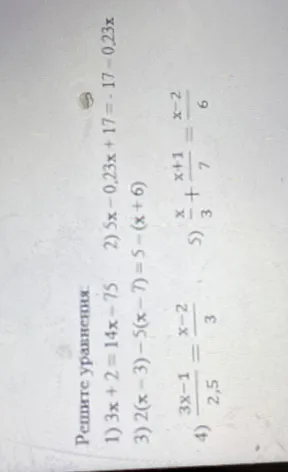 Решите уравнения:
1) 3x + 2 = 14x − 75 2) 5x − 0,23x + 17 = - 17 − 0,23x
3) 2(x − 3) − 5(x − 7) = 5 − (x + 6)
4) (3x−1)/(2,5) = (x−2)/3 5) x/3 + (x+1)/7 = (x−2)/6